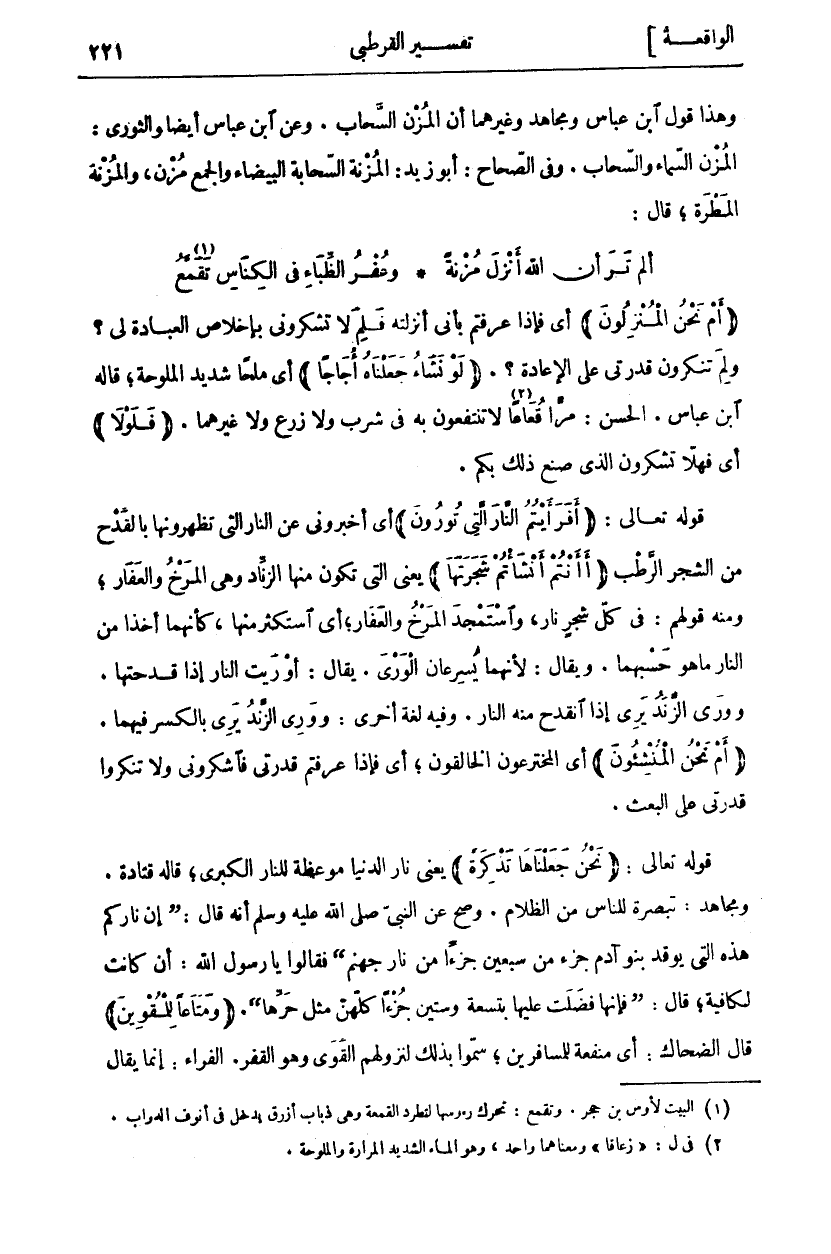 الواقعـــة ]
تفســـير القرطبى
٢٢١
وهذا قول ٱبن عباس ومجاهد وغيرهما أن المُزْن السَّحاب . وعن ٱبن عباس أيضا والثورى :
المُزْن السّماء والسّحاب . وفى الصّحاح : أبو زيد : المُزْنة السّحابة البيضاء والجمع مُزْن، والمُزْنة
المَطْرَة ؛ قال :
ألم تَـرَ أن الله أَنْزلَ مُزْنةً * وعُفْـرُ الظِّبَاءِ فى الكِنَاسِ تَقَمَّعُ (١)
﴿ أَمْ نَحْنُ الْمُنْزِلُونَ ﴾ أى فإذا عرفتم بأنى أنزلته فَـلِمَ لا تشكرونى بإخلاص العبـادة لى ؟
ولِمَ تنكرون قدرتى على الإعادة ؟ . ﴿ لَوْ نَشَاءُ جَعَلْنَاهُ أُجَاجًا ﴾ أى ملحًا شديد الملوحة ؛ قاله
ٱبن عباس . الحسن : مرًّا قُعَاعًا (٢) لا تنتفعون به فى شرب ولا زرع ولا غيرهما . ﴿ فَـلَوْلَا ﴾
أى فهلّا تشكرون الذى صنع ذلك بكم .
قوله تعـالى : ﴿ أَفَرَأَيْتُمُ النَّارَ الَّتِى تُورُونَ ﴾ أى أخبرونى عن النار التى تظهرونها بالقَدْح
من الشجر الرَّطْب ﴿ أَأَنْتُمْ أَنْشَأْتُمْ شَجَرَتَهَا ﴾ يعنى التى تكون منها الزِّناد وهى المَرْخُ والعَفَار ؛
ومنه قولهم : فى كلّ شجرٍ نار، وٱسْتَمْجدَ المَرْخُ والعَفَار؛ أى ٱستكثر منها ، كأنهما أخذا من
النار ما هو حَسْبهما . ويقال : لأنهما يُسرِعان الْوَرْىَ . يقال : أوْرَيت النار إذا قـدحتها .
وورَى الزَّنْدُ يَرِى إذا ٱنقدح منه النار . وفيه لغة أخرى : ووَرِى الزَّنْدُ يَرِى بالكسر فيهما .
﴿ أَمْ نَحْنُ الْمُنْشِئُونَ ﴾ أى المخترعون الخالقون ؛ أى فإذا عرفتم قدرتى فٱشكرونى ولا تنكروا
قدرتى على البعث .
قوله تعالى : ﴿ نَحْنُ جَعَلْنَاهَا تَذْكِرَةً ﴾ يعنى نار الدنيا موعظة للنار الكبرى ؛ قاله قتادة .
ومجاهد : تبصرة للناس من الظلام . وصح عن النبىّ صلى الله عليه وسلم أنه قال : ” إن ناركم
هذه التى يوقد بنو آدم جزء من سبعين جزءًا من نار جهنم “ فقالوا يا رسول الله : أن كانت
لكافية ؛ قال : ” فإنها فضَلَت عليها بتسعة وستين جُزْءًا كلّهنّ مثل حَرّها“ . ﴿ وَمَتَاعًا لِلْمُقْوِينَ ﴾
قال الضحاك : أى منفعة للمسافرين ؛ سمّوا بذلك لنزولهم القَوَى وهو القفر. الفراء : إنما يقال
(١) البيت لأوس بن حجر . وتقمع : تحرك رءوسها لتطرد القمعة وهى ذباب أزرق يدخل فى أنوف الدواب .
٢) فى ل : « زعاقا » ومعناهما واحد ، وهو المـاء الشديد المرارة والملوحة .